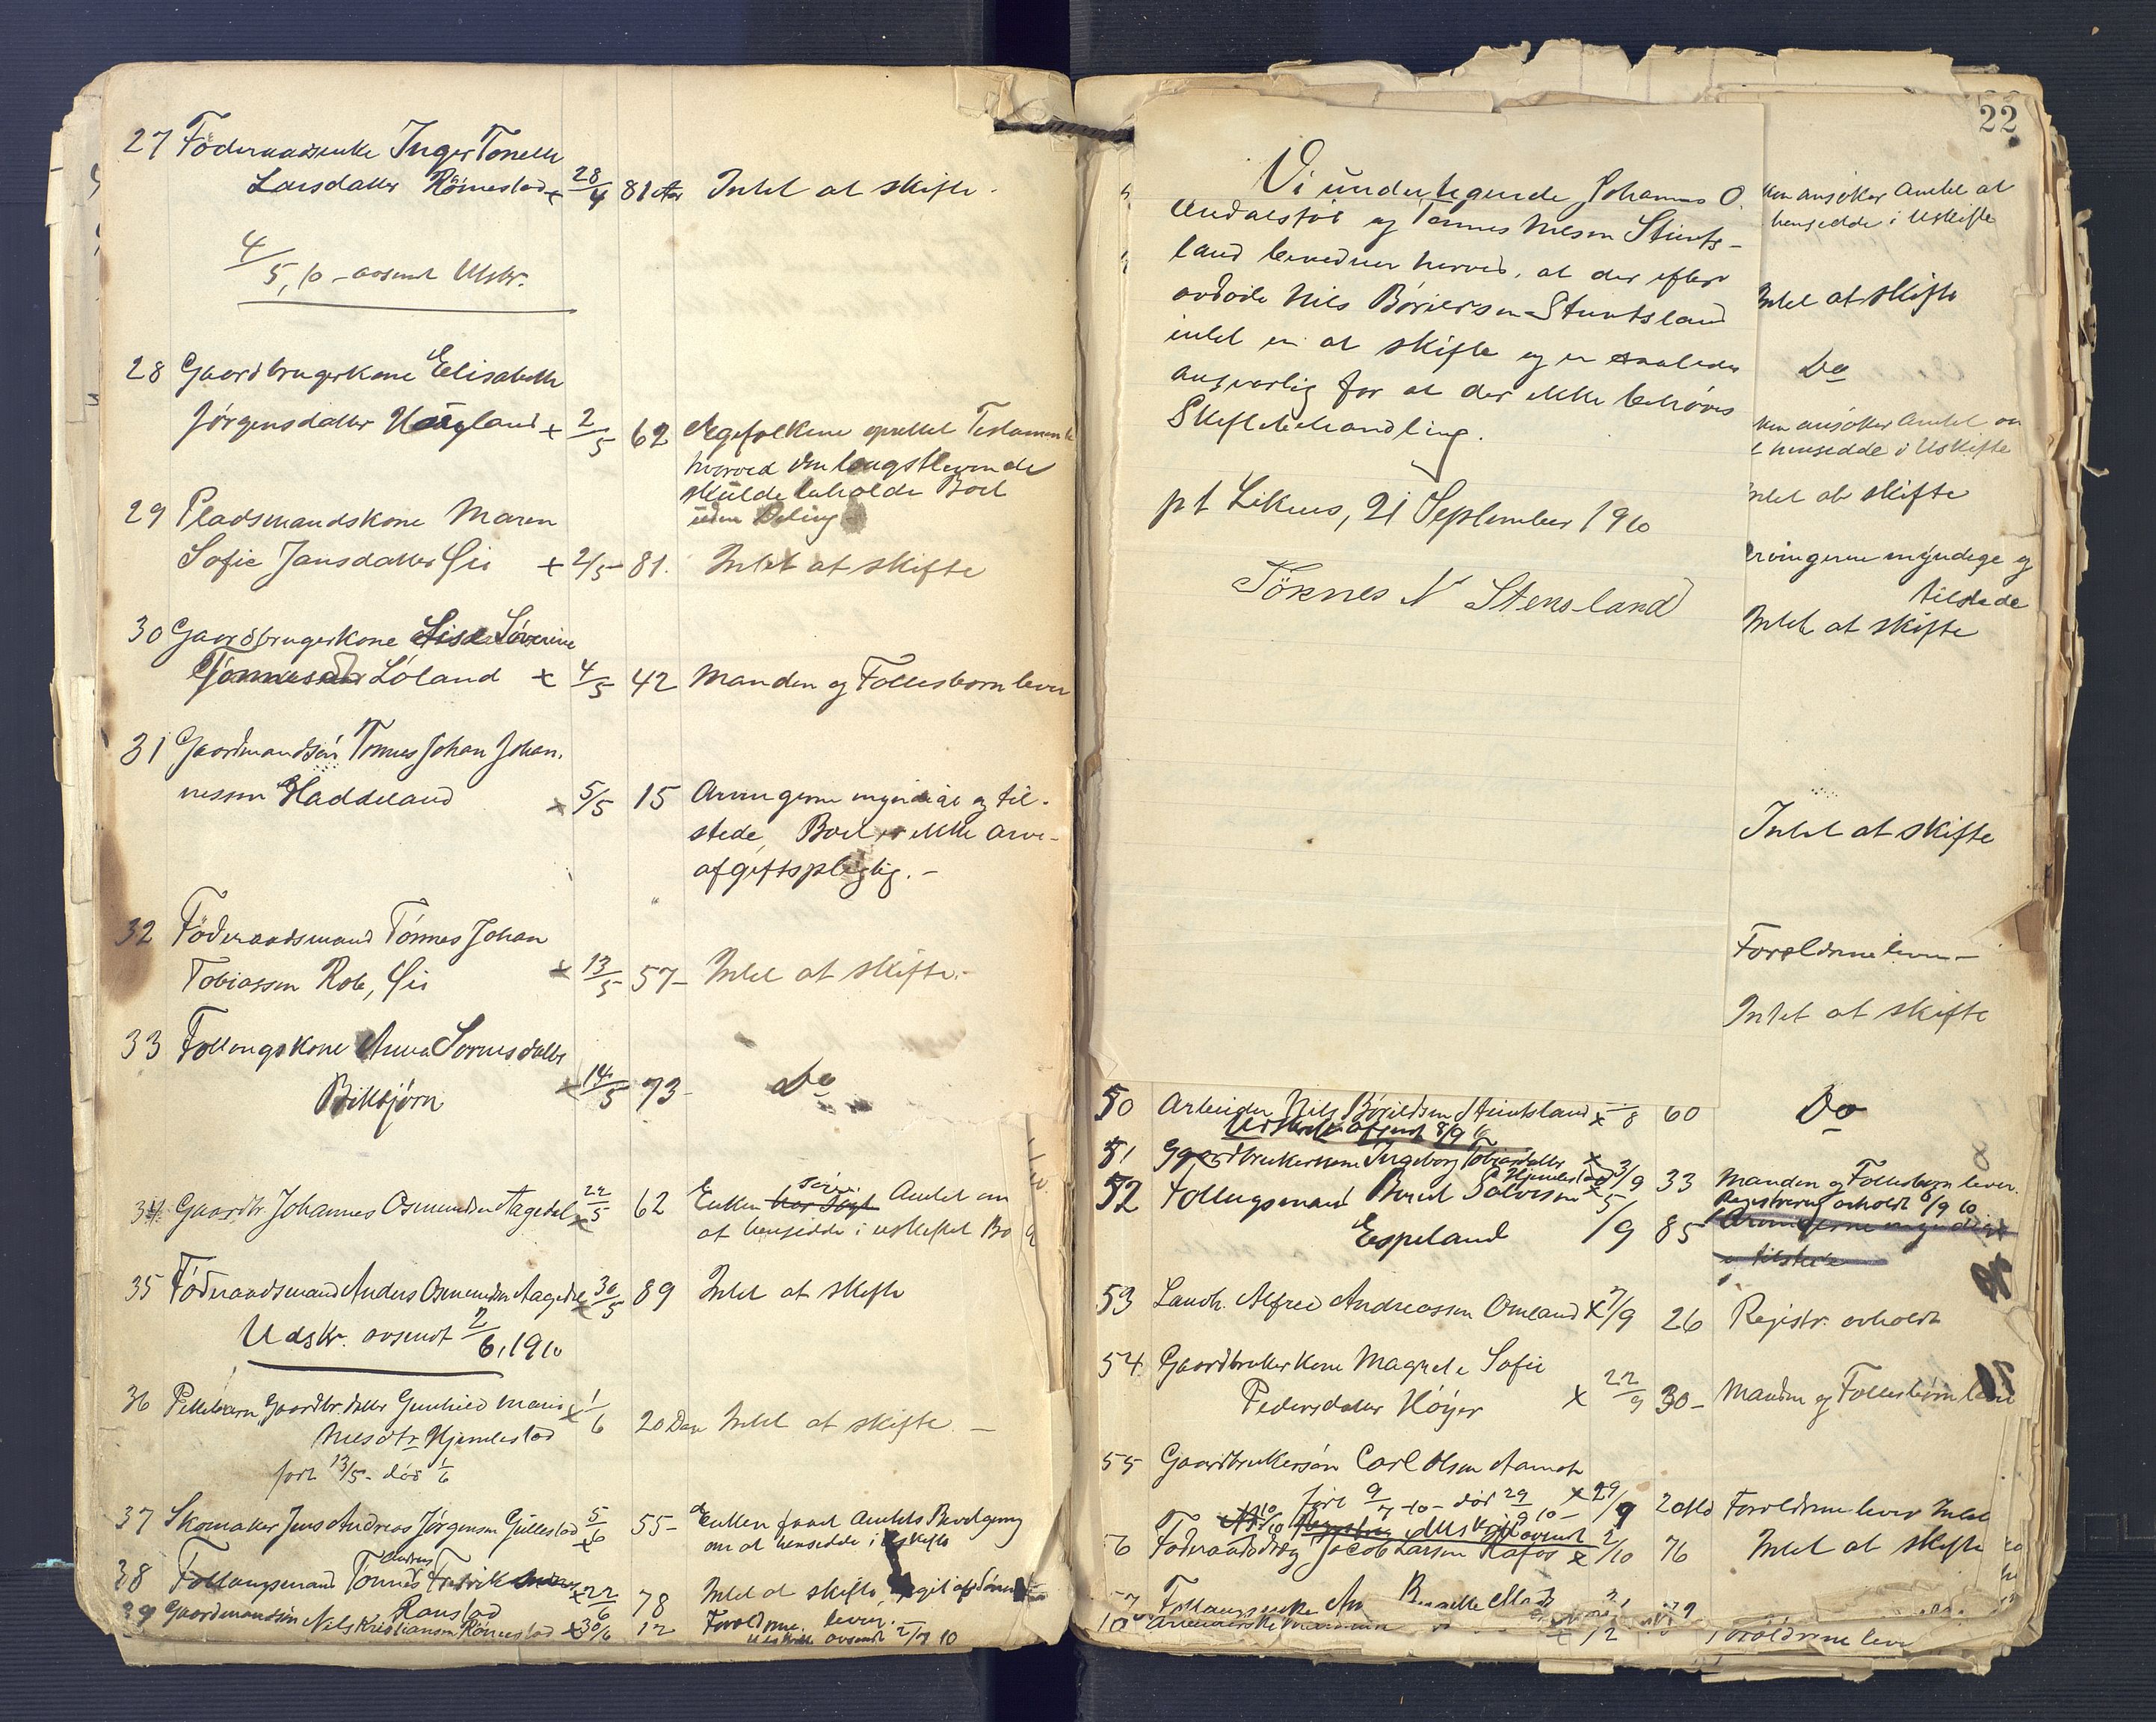 27 Föderaadsenke Inger Tonette
Larsdatter Rømestad x 28/4 81 Aar Intet at skifte.
4/5, 10 - avsendt Utskr.
28 Gaardbrugerkone Elisabeth
Jørgensdatter x 2/5 62 Ægefolkene oprettet Testament
hvorved den længstlevende
skulde beholde Boet
uden Deling
29 Pladsmandskone Maren
Sofie Jansdatter Øie x 2/5 81. Intet at skifte
30 Gaardbrugerkone Lise Søverine
Tønnesdtr Løland x 4/5 42 Manden og Fællesbørn lever
31 Gaardmandssøn Tønnes Johan Johan.
nessen Haddeland x 5/5 15 Arvingerne myndige og til-
stede, Boet er ikke arve-
afgiftspligtig. -
32 Föderaadsmand Tønnes Johan
Tobiassen Rob, Øie x 13/5 57 - Intet at skifte. -
33 Follougskone Anna
x 14/5 73 - Do
34 Gaardbr. Johannes Osmundsen Aagedal 22/5 x 62 Enken har søgt Amtet om
at hensidde i uskiftet Bo
35 Föderaadsmand Anders Osmundsen Aagedal 30/5 x 89 Intet at skifte
Udskr. avsendt 2/6, 1910
36 Pikebarn Gaardbr.datter Gunhild Marie x 1/6 20 Dage Intet at skifte -
Nilsdtr Hjemlestad
født 13/5 - død 1/6
37 Skomaker Jens Andreas Jørgensen Gullestad 5/6 x 55 - Enken faaet Amtets Bevilgning
om at hensidde i Uskifte
38 Follougsmand Tønnes Andreas Fredrik x 22/6 78 Intet at skifte,
Ranstad
39 Gaardmandssøn Nils Kristiansen Rømestad x 30/6 12 Forældrene lever.
Utskrift avsendt 2/7 10
22
Vi undertegnede Johannes O.
Aadalsføt og Tønnes Nilsen Stints-
land bevidner herved, at der efter
avdøde Nils Børilsen Stuntsland
intet er at skifte og er saaledes
ansvarlig for at der ikke behøves
Skiftebehandling.
pt Liknes, 21 September 1910
Tönnes N Stensland
ken ansøker Amtet at
hensidde i Uskifte
Intet at skifte
Do
ken ansøker Amtet om
t hensidde i Uskifte
Intet at skifte
rvingerne myndige og
tilstede
Intet at skifte
Intet at skifte
Forældrene lever -
Intet at skifte
50 Arbeider Nils Børildsen Stuntsland x /8 60 Do
Utskrift afsendt 8/9 10
51 Gaardbrukerkone Ingeborg Tobiasdatter
Hjemlestad x 3/9 33 Manden og Fællesbørn lever.
52 Follugsmand Berent Salvesen x 5/9 Registrering avholdt 6/9 10
Espeland 85 Arvingerne myndige
o tilstede
53 Landh. Alfred Andreassen Omland x 7/9 26 Registr. avholdt
54 Gaardbrukerkone Magrete Sofie
Pedersdatter Höyer x 22/9 30 - Manden og Fællesbørn lever
55 Gaardbrukersøn Carl Olsen Aamot
født 9/7 -10 - død 29/10 - x 29/9 Forældrene lever Intet
Utskrift avsendt
6 Föderaadsdreng Jacob Larsen Rafos x 2/10 76 Intet at skifte
7
Forældrene lever